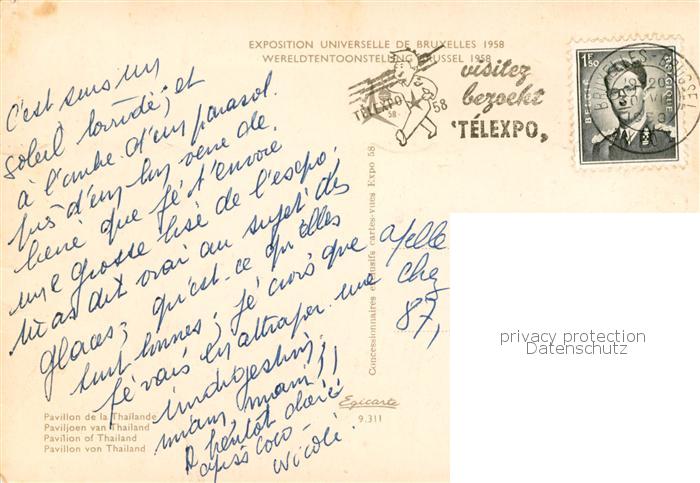 EXPOSITION UNIVERSELLE DE BRUXELLES 1958
WERELDTENTOONSTELLING BRUSSEL 1958
TÉLEXPO
58
58
visitez
bezoekt
"TÉLEXPO,,
1F50
BELGIE
BELGIQUE
C'est sous un
soleil torride; et
à l'ombre d'un parasol.
près d'un bon verre de
bière que jé t'envoie
une grosse bisé de l'expo,
tu as dit vrai au sujet des
glaces; qu'est-ce qu'elles
sont bonnes; jé crois que
jé vais en attraper une
indigestion,
miam, miam!!
A bientôt
Coco-
Nicole.
chez
87,
Concessionnaires exclusifs cartes-vues Expo 58
Pavillon de la Thaïlande
Paviljoen van Thailand
Pavilion of Thailand
Pavillon von Thailand
Egicarte
9.311
privacy protection
Datenschutz